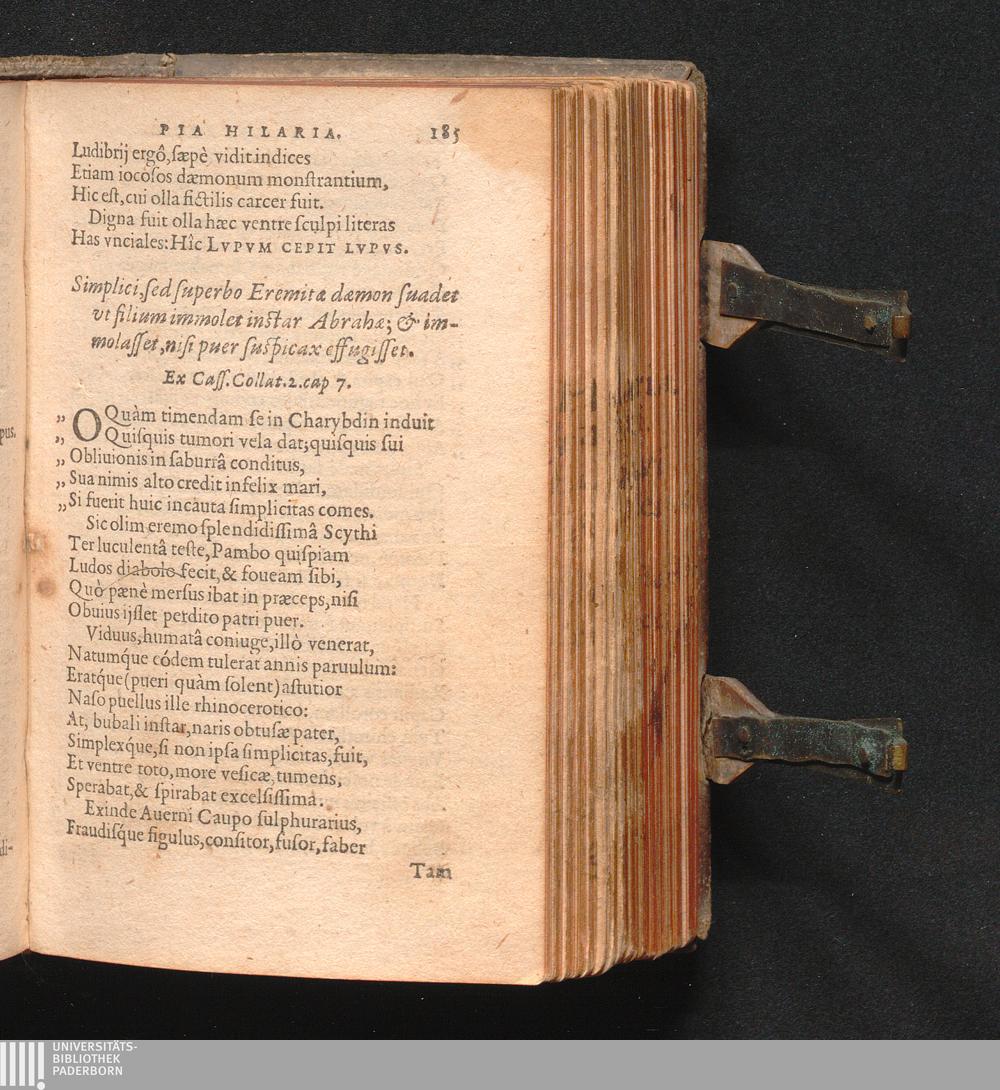 PIA HILARIA. 185
Ludibrij ergô, sæpè vidit indices
Etiam iocosos dæmonum monstrantium,
Hic est, cui olla fictilis carcer fuit.
Digna fuit olla hæc ventre sculpi literas
Has vnciales: Hîc LVPVM CEPIT LVPVS.
Simplici, sed superbo Eremitæ dæmon suadet
vt filium immolet instar Abrahæ; & im-
molasset, nisi puer suspicax effugisset.
Ex Cass. Collat. 2. cap 7.
„ O Quàm timendam se in Charybdin induit
„ Quisquis tumori vela dat; quisquis sui
„ Obliuionis in saburrâ conditus,
„ Sua nimis alto credit infelix mari,
„ Si fuerit huic incauta simplicitas comes.
Sic olim eremo splendidissimâ Scythi
Ter luculentâ teste, Pambo quispiam
Ludos diabolo fecit, & foueam sibi,
Quò pænè mersus ibat in præceps, nisi
Obuius ijsset perdito patri puer.
Viduus, humatâ coniuge, illò venerat,
Natumq́ue códem tulerat annis paruulum:
Eratq́ue (pueri quàm solent) astutior
Naso puellus ille rhinocerotico:
At, bubali instar, naris obtusæ pater,
Simplexq́ue, si non ipsa simplicitas, fuit,
Et ventre toto, more vesicæ, tumens,
Sperabat, & spirabat excelsissima.
Exinde Auerni Caupo sulphurarius,
Fraudisq́ue figulus, consitor, fusor, faber
Tam
pus.
di-
UNIVERSITÄTS-
BIBLIOTHEK
PADERBORN